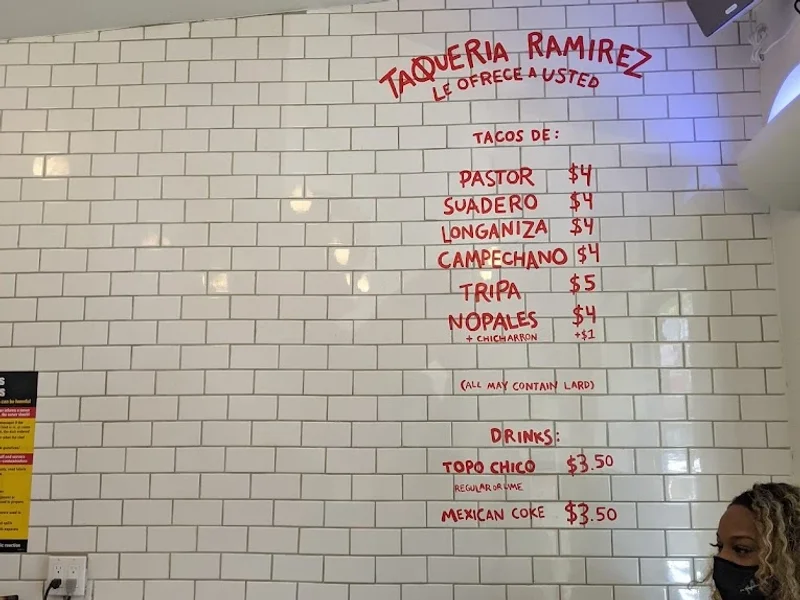 TAQUERIA RAMIREZ
LE OFRECE A USTED
TACOS DE:
PASTOR $4
SUADERO $4
LONGANIZA $4
CAMPECHANO $4
TRIPA $5
NOPALES $4
+ CHICHARRON +$1
(ALL MAY CONTAIN LARD)
DRINKS:
TOPO CHICO $3.50
REGULAR OR LIME
MEXICAN COKE $3.50